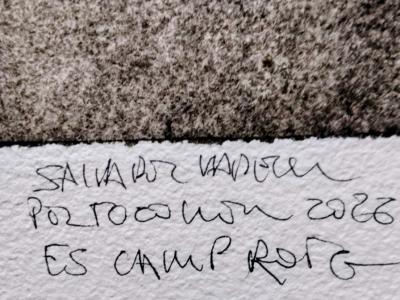 SALVADOR VADELL
PORTOCOLOM 2026
ES CAMP ROIG